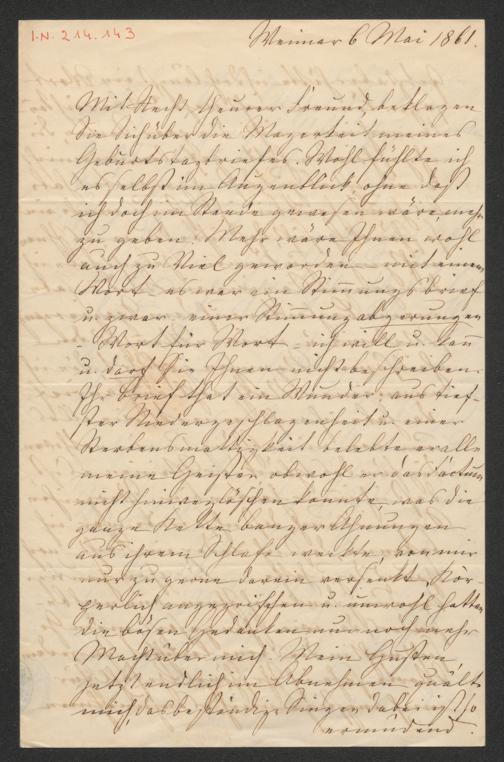 I.N. 214.143
Weimar 6 Mai 1861.
Mit Recht, theurer Freund, beklagen
Sie Sich über die Magerkeit meines
Geburtstagbriefes. Wohl fühlte ich
es selbst im Augenblick, ohne daß
ich doch im Stande gewesen wäre, mehr
zu geben. Mehr wäre Ihnen wohl
auch zu Viel geworden – mit einem
Wort – es war ein Stimmungsbrief
u. zwar einer Stimmung abgerungen
– Wort für Wort – ich will u. kann
u. darf Sie Ihnen nicht beschreiben.
Ihr Brief that ein Wunder: aus tief-
ster Niedergeschlagenheit u. einer
Sterbensmattigkeit belebte er alle
meine Geister, obwohl er das factum
nicht hinweglöschen konnte, was die
ganze Kette banger Ahnungen
aus ihrem Schlafe weckte, von mir
nur zu gerne darein versenkt. Kör-
perlich angegriffen u. unwohl hatten
die bösen Gedanken nur noch mehr
Macht über mich. Mein Husten,
jetzt endlich im Abnehmen, quälte
mich, das beständige Singen dabei ist so
ermüdend.